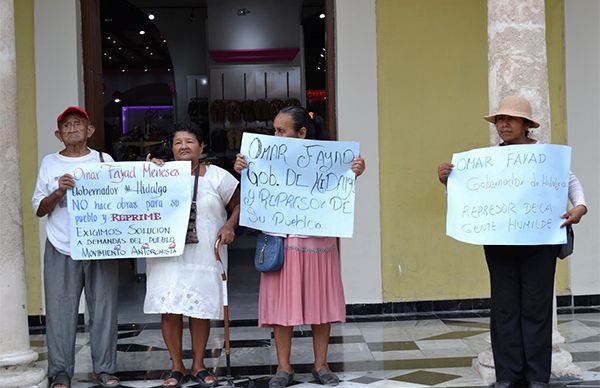 Omar Fayad Meneses
Gobernador de Hidalgo
NO hace obras para su
pueblo y REPRIME
EXIGIMOS SOLUCIÓN
A DEMANDAS DEL PUEBLO
MOVIMIENTO ANTORCHISTA
OMAR FAYAD
GOB. DE HIDALGO
Y REPRESOR DE
SU PUEBLO
OMAR FAYAD
Gobernador de Hidalgo
REPRESOR DE LA
GENTE HUMILDE